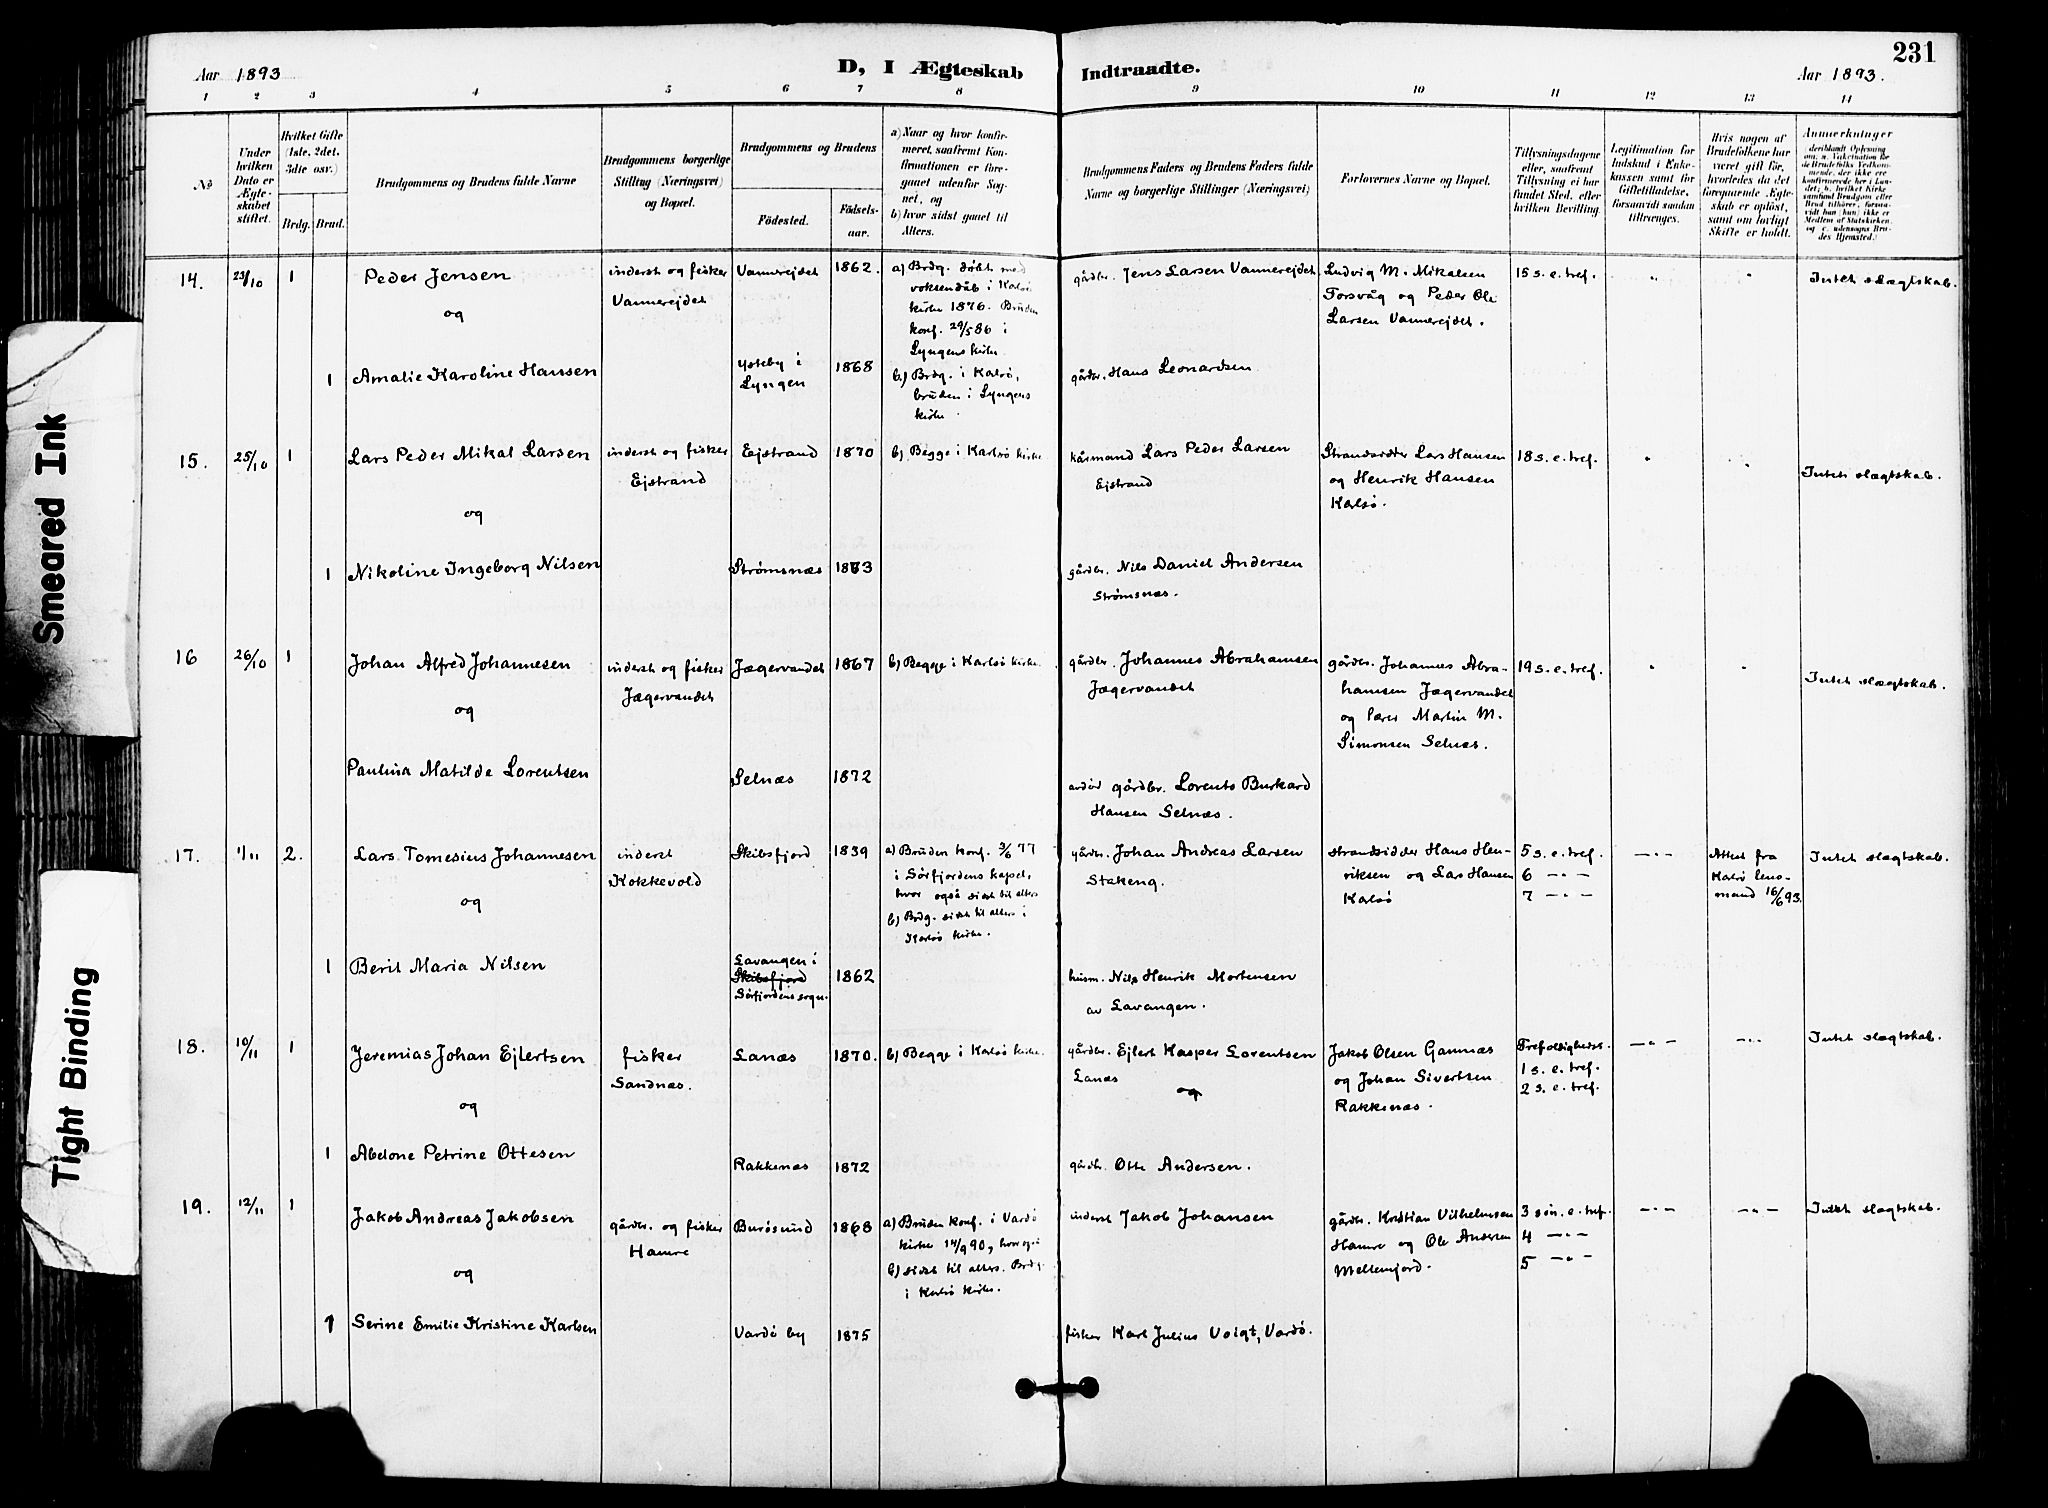 231
Aar 1893
D, I Ægteskab
Indtraadte.
Aar 1893.
1 2 3 4 5 6 7 8 9 10 11 12 13 14
No
Under hvilken Dato er Ægteskabet stiftet.
Hvilket Gifte (1ste, 2det, 3die osv.)
Brdg. Brud.
Brudgommens og Brudens fulde Navne
Brudgommens borgerlige Stilling (Næringsvei) og Bopæl.
Brudgommens og Brudens
Födested.
Födselsaar.
a) Naar og hvor konfirmeret, saafremt Konfirmationen er foregaaet udenfor Sognet, og
b) hvor sidst gaaet til Alters.
Brudgommens Faders og Brudens Faders fulde Navne og borgerlige Stillinger (Næringsvei)
Forlovernes Navne og Bopæl.
Tillysningsdagene eller, saafremt Tillysning ei har fundet Sted, efter hvilken Bevilling.
Legitimation for Indskud i Enkekassen samt for Giftetilladelse, forsaavidt saadan tiltrænges.
Hvis nogen af Brudefolkene har været gift för, hvorledes da det foregaaende Ægteskab er oplöst, samt om lovligt Skifte er holdt.
Anmerkninger
14. 23/10 1 Peder Jensen
og
inderst og fisker
Vannerejdet
Vannerejdet 1862.
a) Brdg. døbt med
voksendåb i Karlsø
kirke 1876. Bruden
konf. 29/5 86 i
Lyngens kirke
gårdbr. Jens Larsen Vannerejdet
Ludvig M. Mikalsen
Torsvåg og Peder Ole
Larsen Vannerejdet.
15 s. e. tref.
Intet slægtskab.
1 Amalie Karoline Hansen
Ysteby i
Lyngen
1868
b) Brdg. i Karlsø,
bruden i Lyngens
kirke
gårdbr. Hans Leonardsen
15. 25/10 1 Lars Peder Mikal Larsen
og
inderst og fisker
Ejstrand
Ejstrand 1870
b) Begge i Karlsø kirke
kårmand Lars Peder Larsen
Ejstrand
Strandsidder Lars Hansen
og Henrik Hansen
Karlsø.
18 s. e. tref.
Intet slægtskab.
1 Nikoline Ingeborg Nilsen
Strømsnæs 1873
gårdbr. Nils Daniel Andersen
Strømsnæs.
16 26/10 1 Johan Alfred Johannesen
og
inderst og fisker
Jægervandet
Jægervandet 1867
b) Begge i Karlsø kirke.
gårdbr. Johannes Abrahamsen
Jægervandet
gårdbr. Johannes Abra-
hamsen Jægervandet
og lærer Martin M.
Simonsen Selnæs.
19 s. e. tref.
Intet slægtskab.
Paulina Matilde Lorentsen
Selnæs 1872
avdød gårdbr. Lorents Burkard
Hansen Selnæs.
17. 1/11 2. Lars Tomesius Johannesen
og
inderst
Kokkevold
Skibsfjord 1839
a) Bruden konf. 3/6 77
i Sørfjordens kapel,
hvor også sidst til alters
b) Brdg. sidst til alters i
Karlsø kirke.
gårdbr. Johan Andreas Larsen
Stakeng.
strandsidder Hans Hen-
riksen og Lars Hansen
Karlsø
5 s. e. tref.
6 — " —
7 — " —
— " —
Attest fra
Karlsø lens-
mand 16/6 93.
Intet slægtskab.
1 Berit Maria Nilsen
Lavangen i
Skibsfjord
Sørfjordens sogn.
1862
husm. Nils Henrik Mortensen
av Lavangen.
18. 10/11 1 Jeremias Johan Ejlertsen
og
fisker
Sandnæs.
Lanæs 1870.
b) Begge i Karlsø kirke.
gårdbr. Ejlert Kasper Lorentsen
Lanæs
og
Jakob Olsen Gamnæs
og Johan Sivertsen
Rakkenæs.
Trefoldigheds.
1 s. e. tref.
2 s. e. tref.
— " —
Intet slægtskab.
1 Abelone Petrine Ottesen
Rakkenæs 1872
gårdbr. Otte Andersen.
19. 12/11 1 Jakob Andreas Jakobsen
og
gårdbr. og fisker
Hamre
Burøsund 1868
a) Bruden konf. i Vardø
kirke 14/9 90, hvor også
b) sidst til alters. Brdg.
i Karlsø kirke.
inderst Jakob Johansen
gårdbr. Kristian Vilhelmsen
Hamre og Ole Andersen
Mellemjord.
3 søn. e. tref.
4 — " —
5 — " —
— " —
— " —
Intet slægtskab.
1 Serine Emilie Kristine Karlsen
Vardø by 1875
fisker Karl Julius Voigt, Vardø.
Smeared Ink
Tight Binding